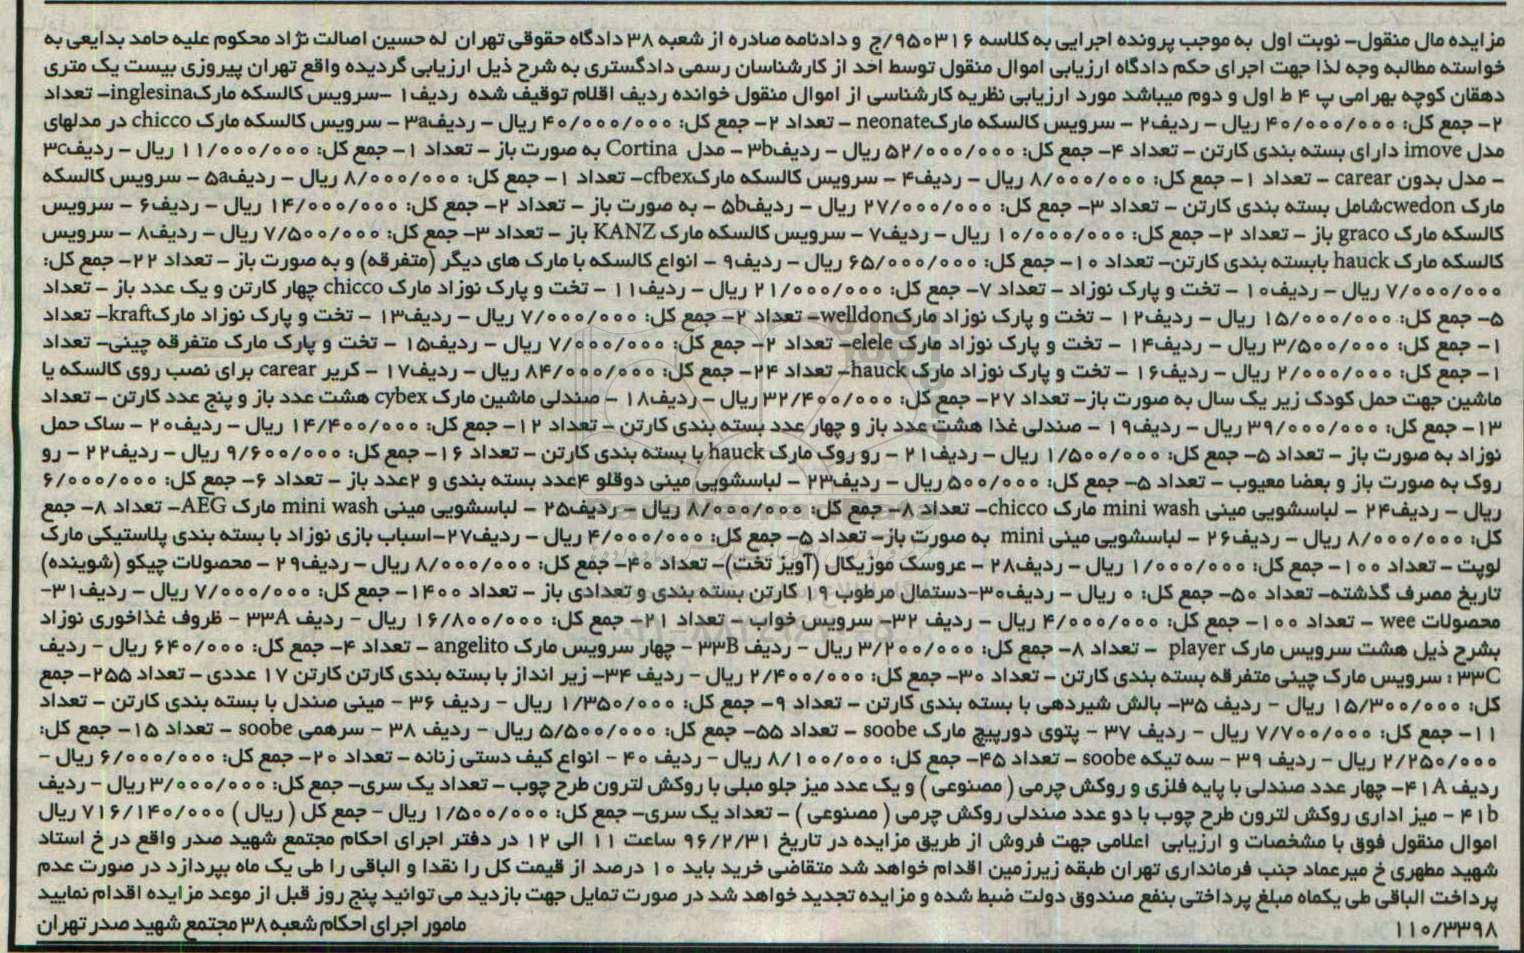 مزایده مال منقول- نوبت اول به موجب پرونده اجرایی به کلاسه ۹۵۰۳۱۶/ج و دادنامه صادره از شعبه ۳۸ دادگاه حقوقی تهران له حسین اصالت نژاد محکوم علیه حامد بدایعی به
خواسته مطالبه وجه لذا جهت اجرای حکم دادگاه ارزیابی اموال منقول توسط احد از کارشناسان رسمی دادگستری به شرح ذیل ارزیابی گردیده واقع تهران پیروزی بیست یک متری
دهقان کوچه بهرامی پ ۴ ط اول و دوم میباشد مورد ارزیابی نظریه کارشناسی از اموال منقول خوانده ردیف اقلام توقیف شده ردیف۱ -سرویس کالسکه مارکinglesina- تعداد
۲- جمع کل: ۴۰/۰۰۰/۰۰۰ ریال – ردیف۲ – سرویس کالسکه مارکneonate – تعداد ۲- جمع کل: ۴۰/۰۰۰/۰۰۰ ریال – ردیف۳a – سرویس کالسکه مارک chicco در مدلهای
مدل imove دارای بسته بندی کارتن – تعداد ۴- جمع کل: ۵۲/۰۰۰/۰۰۰ ریال – ردیف۳b – مدل Cortina به صورت باز – تعداد ۱- جمع کل: ۱۱/۰۰۰/۰۰۰ ریال – ردیف۳c
– مدل بدون carear – تعداد ۱- جمع کل: ۸/۰۰۰/۰۰۰ ریال – ردیف۴ – سرویس کالسکه مارکcfbex- تعداد ۱- جمع کل: ۸/۰۰۰/۰۰۰ ریال – ردیف۵a – سرویس کالسکه
مارک cwedonشامل بسته بندی کارتن – تعداد ۳- جمع کل: ۲۷/۰۰۰/۰۰۰ ریال – ردیف۵b – به صورت باز – تعداد ۲- جمع کل: ۱۴/۰۰۰/۰۰۰ ریال – ردیف۶ – سرویس
کالسکه مارک graco باز – تعداد ۲- جمع کل: ۱۰/۰۰۰/۰۰۰ ریال – ردیف۷ – سرویس کالسکه مارک KANZ باز – تعداد ۳- جمع کل: ۷/۵۰۰/۰۰۰ ریال – ردیف۸ – سرویس
کالسکه مارک hauck بابسته بندی کارتن- تعداد ۱۰- جمع کل: ۶۵/۰۰۰/۰۰۰ ریال – ردیف۹ – انواع کالسکه با مارک های دیگر (متفرقه) و به صورت باز – تعداد ۲۲- جمع کل:
۷/۰۰۰/۰۰۰ ریال – ردیف۱۰ – تخت و پارک نوزاد – تعداد ۷- جمع کل: ۲۱/۰۰۰/۰۰۰ ریال – ردیف۱۱ – تخت و پارک نوزاد مارک chicco چهار کارتن و یک عدد باز – تعداد
۵- جمع کل: ۱۵/۰۰۰/۰۰۰ ریال – ردیف۱۲ – تخت و پارک نوزاد مارکwelldon- تعداد ۲- جمع کل: ۷/۰۰۰/۰۰۰ ریال – ردیف۱۳ – تخت و پارک نوزاد مارکkraft- تعداد
۱- جمع کل: ۳/۵۰۰/۰۰۰ ریال – ردیف۱۴ – تخت و پارک نوزاد مارک elele- تعداد ۲- جمع کل: ۷/۰۰۰/۰۰۰ ریال – ردیف۱۵ – تخت و پارک مارک متفرقه چینی- تعداد
۱- جمع کل: ۲/۰۰۰/۰۰۰ ریال – ردیف۱۶ – تخت و پارک نوزاد مارک hauck- تعداد ۲۴- جمع کل: ۸۴/۰۰۰/۰۰۰ ریال – ردیف۱۷ – کریر carear برای نصب روی کالسکه یا
ماشین جهت حمل کودک زیر یک سال به صورت باز- تعداد ۲۷- جمع کل: ۳۲/۴۰۰/۰۰۰ ریال – ردیف۱۸ – صندلی ماشین مارک cybex هشت عدد باز و پنج عدد کارتن – تعداد
۱۳- جمع کل: ۳۹/۰۰۰/۰۰۰ ریال – ردیف۱۹ – صندلی غذا هشت عدد باز و چهار عدد بسته بندی کارتن – تعداد ۱۲- جمع کل: ۱۴/۴۰۰/۰۰۰ ریال – ردیف۲۰ – ساک حمل
نوزاد به صورت باز – تعداد ۵- جمع کل: ۱/۵۰۰/۰۰۰ ریال – ردیف۲۱ – رو روک مارک hauck با بسته بندی کارتن – تعداد ۱۶- جمع کل: ۹/۶۰۰/۰۰۰ ریال – ردیف۲۲ – رو
روک به صورت باز و بعضا معیوب – تعداد ۵- جمع کل: ۵۰۰/۰۰۰ ریال – ردیف۲۳ – لباسشویی مینی دوقلو ۴عدد بسته بندی و ۲عدد باز – تعداد ۶- جمع کل: ۶/۰۰۰/۰۰۰
ریال – ردیف۲۴ – لباسشویی مینی mini wash مارک chicco- تعداد ۸- جمع کل: ۸/۰۰۰/۰۰۰ ریال – ردیف۲۵ – لباسشویی مینی mini wash مارک AEG- تعداد ۸- جمع
کل: ۸/۰۰۰/۰۰۰ ریال – ردیف۲۶ – لباسشویی مینی mini به صورت باز- تعداد ۵- جمع کل: ۴/۰۰۰/۰۰۰ ریال – ردیف۲۷-اسباب بازی نوزاد با بسته بندی پلاستیکی مارک
لوپت – تعداد ۱۰۰- جمع کل: ۱/۰۰۰/۰۰۰ ریال – ردیف۲۸ – عروسک موزیکال (آویز تخت)- تعداد ۴۰- جمع کل: ۸/۰۰۰/۰۰۰ ریال – ردیف۲۹ – محصولات چیکو (شوینده)
تاریخ مصرف گذشته- تعداد ۵۰- جمع کل: ۰ ریال – ردیف۳۰-دستمال مرطوب ۱۹ کارتن بسته بندی و تعدادی باز – تعداد ۱۴۰۰- جمع کل: ۷/۰۰۰/۰۰۰ ریال – ردیف۳۱-
محصولات wee – تعداد ۱۰۰- جمع کل: ۴/۰۰۰/۰۰۰ ریال – ردیف ۳۲- سرویس خواب – تعداد ۲۱- جمع کل: ۱۶/۸۰۰/۰۰۰ ریال – ردیف ۳۳A – ظروف غذاخوری نوزاد
بشرح ذیل هشت سرویس مارک player – تعداد ۸- جمع کل: ۳/۲۰۰/۰۰۰ ریال – ردیف ۳۳B – چهار سرویس مارک angelito – تعداد ۴- جمع کل: ۶۴۰/۰۰۰ ریال – ردیف
۳۳C : سرویس مارک چینی متفرقه بسته بندی کارتن – تعداد ۳۰- جمع کل: ۲/۴۰۰/۰۰۰ ریال – ردیف ۳۴- زیر انداز با بسته بندی کارتن کارتن ۱۷ عددی – تعداد ۲۵۵- جمع
کل: ۱۵/۳۰۰/۰۰۰ ریال – ردیف ۳۵- بالش شیردهی با بسته بندی کارتن – تعداد ۹- جمع کل: ۱/۳۵۰/۰۰۰ ریال – ردیف ۳۶ – مینی صندل با بسته بندی کارتن – تعداد
۱۱- جمع کل: ۷/۷۰۰/۰۰۰ ریال – ردیف ۳۷ – پتوی دورپیچ مارک soobe – تعداد ۵۵- جمع کل: ۵/۵۰۰/۰۰۰ ریال – ردیف ۳۸ – سرهمی soobe – تعداد ۱۵- جمع کل:
۲/۲۵۰/۰۰۰ ریال – ردیف ۳۹ – سه تیکه soobe – تعداد ۴۵- جمع کل: ۸/۱۰۰/۰۰۰ ریال – ردیف ۴۰ – انواع کیف دستی زنانه – تعداد ۲۰- جمع کل: ۶/۰۰۰/۰۰۰ ریال –
ردیف ۴۱A- چهار عدد صندلی با پایه فلزی و روکش چرمی (مصنوعی) و یک عدد میز جلو مبلی با روکش لترون طرح چوب – تعداد یک سری- جمع کل: ۳/۰۰۰/۰۰۰ ریال – ردیف
۴۱b – میز اداری روکش لترون طرح چوب با دو عدد صندلی روکش چرمی (مصنوعی) – تعداد یک سری- جمع کل: ۱/۵۰۰/۰۰۰ ریال – جمع کل (ریال) ۷۱۶/۱۴۰/۰۰۰ ریال
اموال منقول فوق با مشخصات و ارزیابی اعلامی جهت فروش از طریق مزایده در تاریخ ۹۶/۲/۳۱ ساعت ۱۱ الی ۱۲ در دفتر اجرای احکام مجتمع شهید صدر واقع در خ استاد
شهید مطهری خ میرعماد جنب فرمانداری تهران طبقه زیرزمین اقدام خواهد شد متقاضی خرید باید ۱۰ درصد از قیمت کل را نقدا و الباقی را طی یک ماه بپردازد در صورت عدم
پرداخت الباقی طی یکماه مبلغ پرداختی بنفع صندوق دولت ضبط شده و مزایده تجدید خواهد شد در صورت تمایل جهت بازدید می توانید پنج روز قبل از موعد مزایده اقدام نمایید
۱۱۰/۳۳۹۸ مامور اجرای احکام شعبه ۳۸ مجتمع شهید صدر تهران